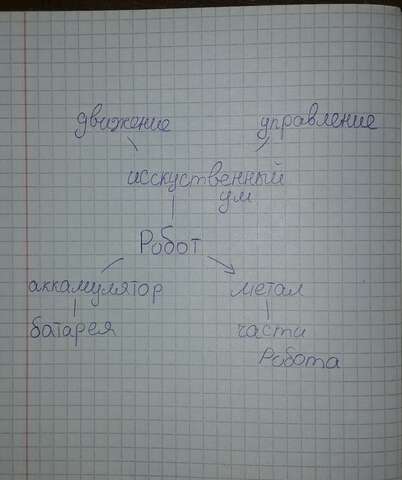 движение управление
исскуственный
ум
Робот
аккамулятор метал
батарея части
Робота